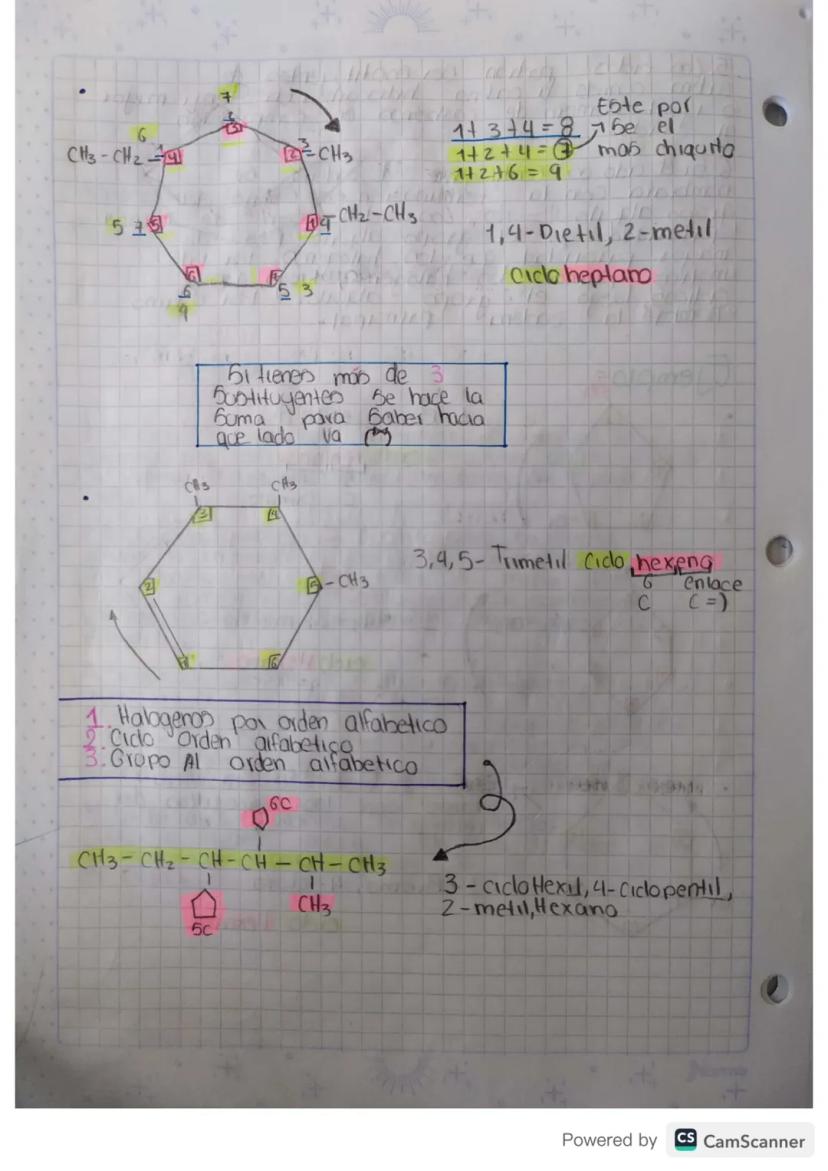 7
3
5
6
CH3-CH2
1
4
2
3
-CH3
5
7
5
1
4
-CH2-CH3
6
6
9
7
5
3
1+3+4=8
1+2+4=7
1+2+6=9
Este por
Se el
mas chiquito
1,4-Dietil, 2-metil
Ciclo heptano
Si tienes más de 3
Sustituyentes Se hace la
Suma para Saber hacia
que lado va
CH3
CH3
3
4
2
5
-CH3
1
6
3,4,5-Trimetil Ciclo hexeno
6 enlace
C (=)
1. Halogenos por orden alfabetico
2. Ciclo Orden alfabetico
3. Grupo Al orden alfabetico
6C
CH3-CH2-CH-CH-CH-CH3
CH3
5C
3-cicloHexil, 4-Ciclopentil,
2-metil, Hexano
Powered by CS CamScanner